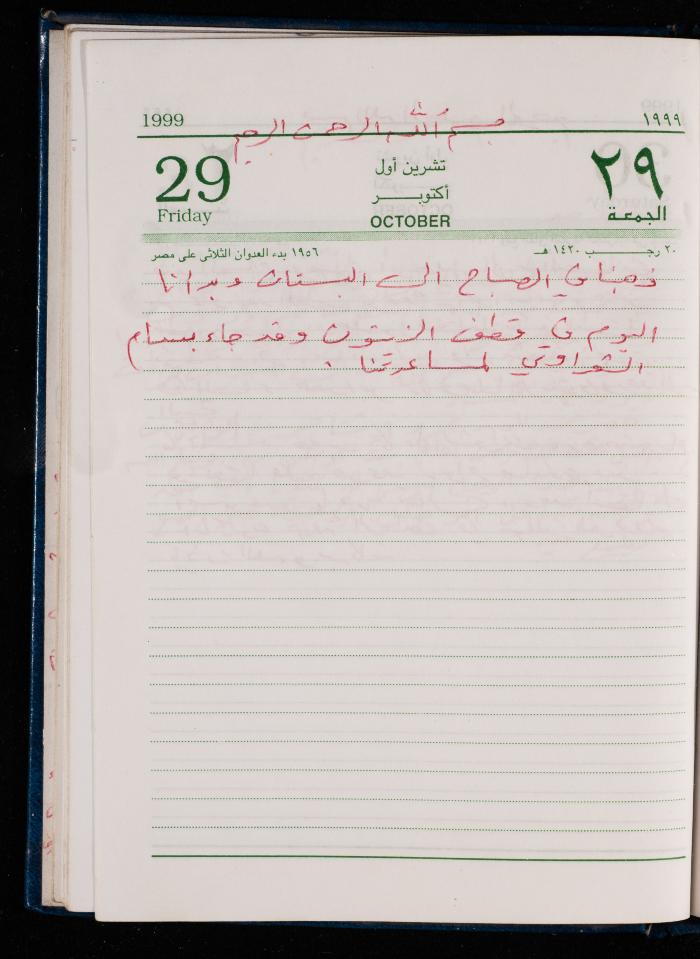 1999
١٩٩٩
بسم الله الرحمن الرحيم
29
Friday
تشرين أول
أكتوبـــــر
OCTOBER
٢٩
الجمعة
٢٠ رجـــــــب ١٤٢٠ هـ
١٩٥٦ بدء العدوان الثلاثى على مصر
ذهبنا في الصباح الى البستان وبدأنا
اليوم في قطف الزيتون وقد جاء بسام
الشعراوي لمساعدتنا .